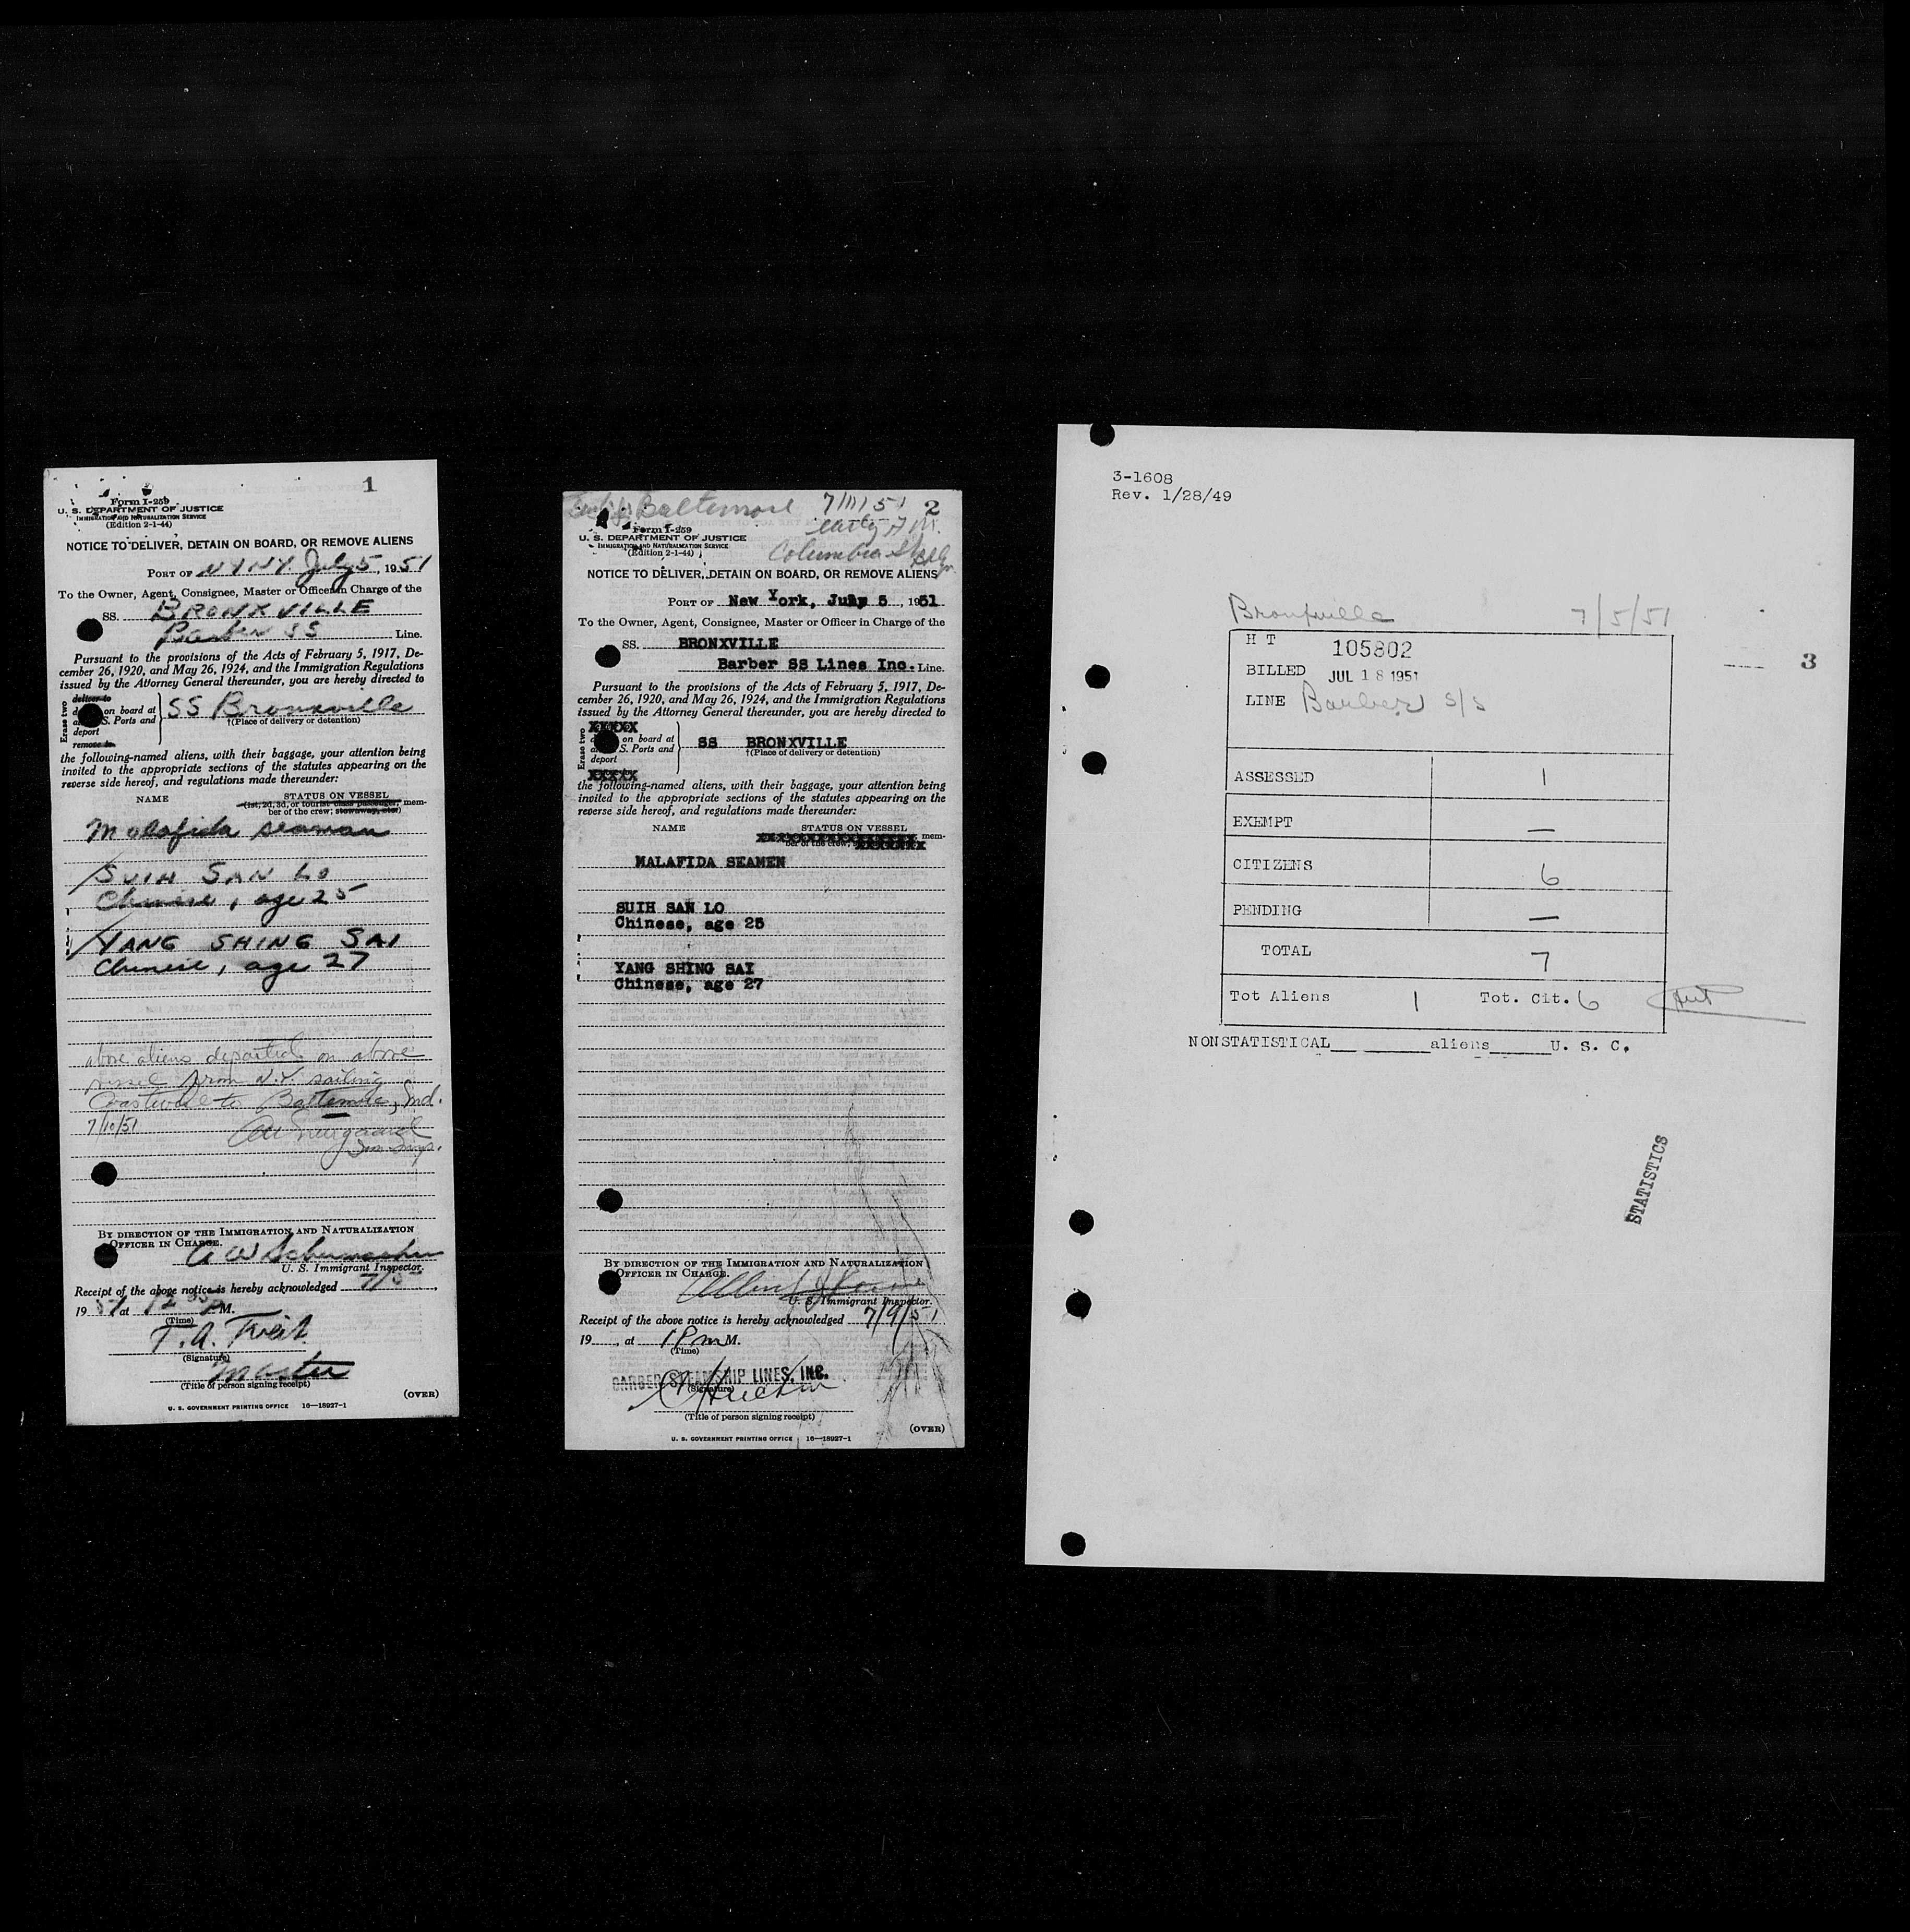 1
Form I-259
U. S. DEPARTMENT OF JUSTICE
IMMIGRATION AND NATURALIZATION SERVICE
(Edition 2-1-44)
NOTICE TO DELIVER, DETAIN ON BOARD, OR REMOVE ALIENS
PORT OF N Y N.Y. July 5, 1951
To the Owner, Agent, Consignee, Master or Officer in Charge of the
SS. BRONXVILLE
Barber SS Line.
Pursuant to the provisions of the Acts of February 5, 1917, De-
cember 26, 1920, and May 26, 1924, and the Immigration Regulations
issued by the Attorney General thereunder, you are hereby directed to
Erase two
deliver to
on board at
S. Ports and
deport
remove to
SS Bronxville
†(Place of delivery or detention)
the following-named aliens, with their baggage, your attention being
invited to the appropriate sections of the statutes appearing on the
reverse side hereof, and regulations made thereunder:
NAME STATUS ON VESSEL
(1st, 2d, 3d, or tourist class passenger, mem-
ber of the crew, stowaway, etc.)
Malafida seaman
SUIH SAN LO
Chinese, age 25
YANG SHING SAI
Chinese, age 27
above aliens departed on above
vessel from N.Y. sailing
Coastwise to Baltimore, Md.
7/10/51
BY DIRECTION OF THE IMMIGRATION AND NATURALIZATION
OFFICER IN CHARGE.
A W Schumacher
U. S. Immigrant Inspector.
Receipt of the above notice is hereby acknowledged 7/5
1951 at 12 30 P M.
(Time)
T. A.
(Signature)
Master
(Title of person signing receipt)
(OVER)
U. S. GOVERNMENT PRINTING OFFICE 16—18927-1
Baltimore 7/11/51 2
early A.M.
Columbia
Form I-259
U. S. DEPARTMENT OF JUSTICE
IMMIGRATION AND NATURALIZATION SERVICE
(Edition 2-1-44)
NOTICE TO DELIVER, DETAIN ON BOARD, OR REMOVE ALIENS
PORT OF New York, July 5, 1951
To the Owner, Agent, Consignee, Master or Officer in Charge of the
SS. BRONXVILLE
Barber SS Lines Inc. Line.
Pursuant to the provisions of the Acts of February 5, 1917, De-
cember 26, 1920, and May 26, 1924, and the Immigration Regulations
issued by the Attorney General thereunder, you are hereby directed to
Erase two
XXXXX
on board at
S. Ports and
deport
XXXXX
SS BRONXVILLE
†(Place of delivery or detention)
the following-named aliens, with their baggage, your attention being
invited to the appropriate sections of the statutes appearing on the
reverse side hereof, and regulations made thereunder:
NAME STATUS ON VESSEL
mem-
ber of the crew,
MALAFIDA SEAMEN
SUIH SAN LO
Chinese, age 25
YANG SHING SAI
Chinese, age 27
BY DIRECTION OF THE IMMIGRATION AND NATURALIZATION
OFFICER IN CHARGE.
U. S. Immigrant Inspector.
Receipt of the above notice is hereby acknowledged 7/9/51
19 , at 1 Pm M.
(Time)
BARBER STEAMSHIP LINES, INC.
(Signature)
(Title of person signing receipt)
(OVER)
U. S. GOVERNMENT PRINTING OFFICE 16—18927-1
3-1608
Rev. 1/28/49
Bronxville 7/5/51
H T 105802
BILLED JUL 18 1951
LINE Barber S/S
3
ASSESSED 1
EXEMPT —
CITIZENS 6
PENDING —
TOTAL 7
Tot Aliens 1 Tot. Cit. 6
NONSTATISTICAL aliens U. S. C.
STATISTICS